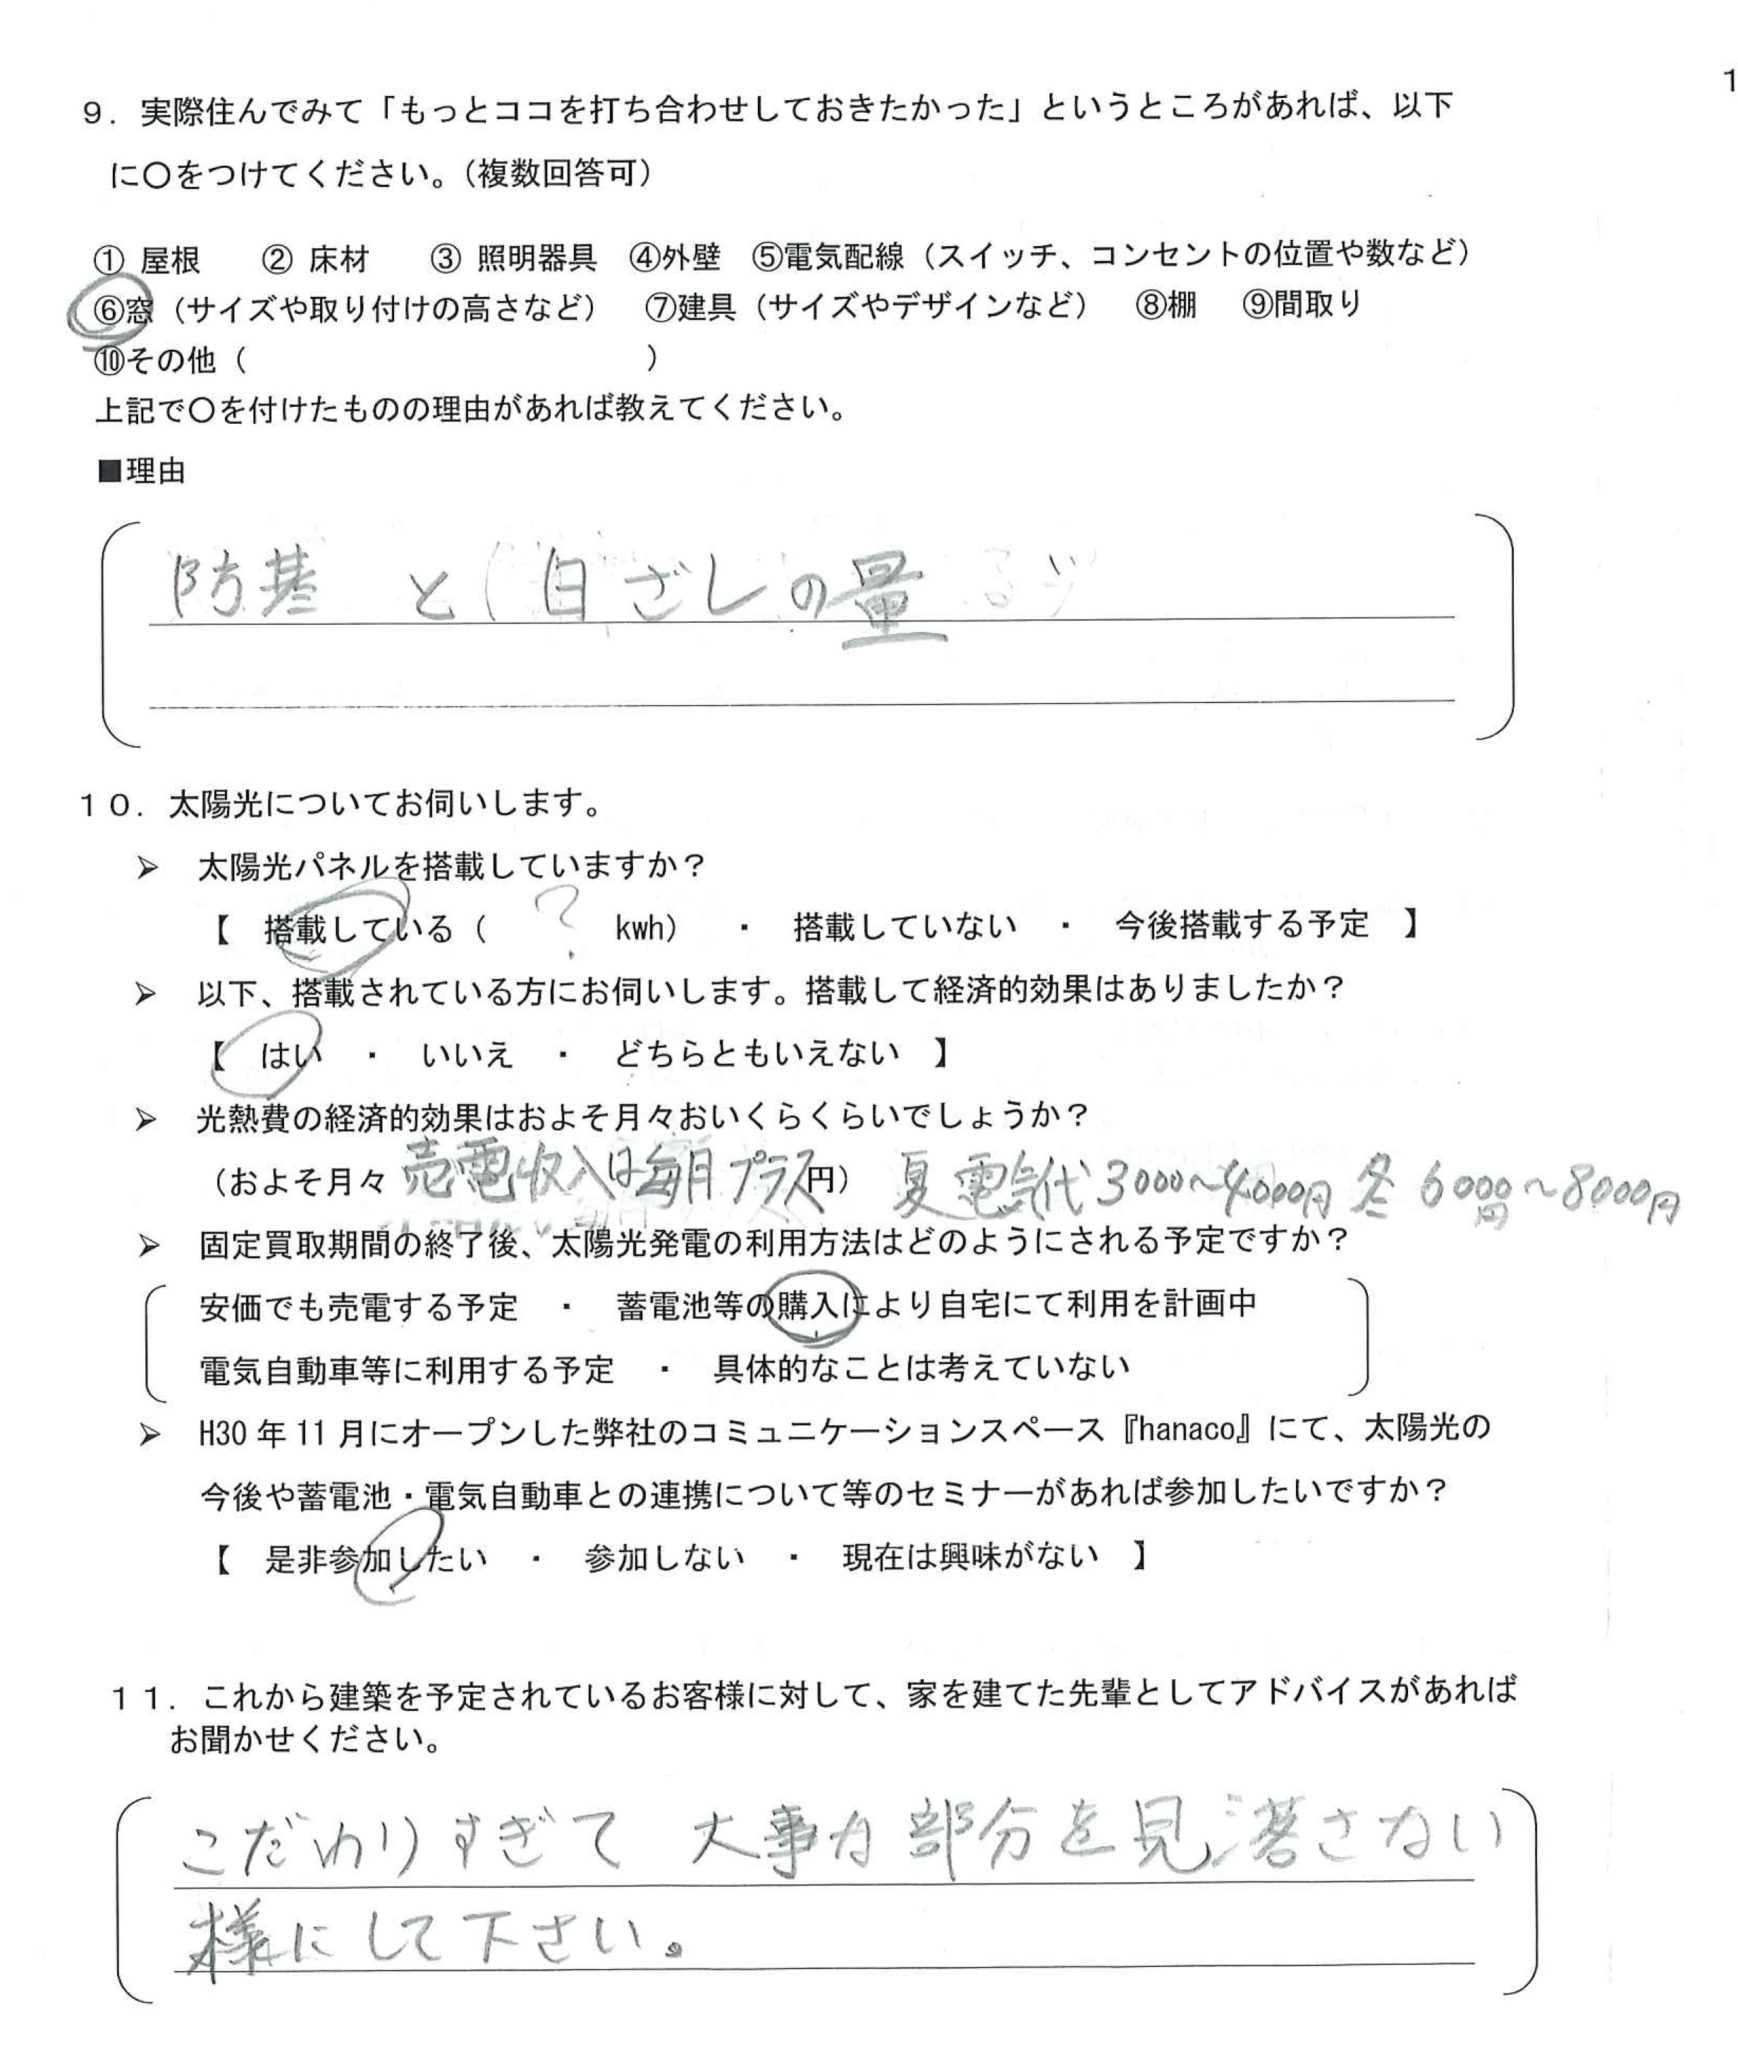 1
９．実際住んでみて「もっとココを打ち合わせしておきたかった」というところがあれば、以下
に〇をつけてください。（複数回答可）
① 屋根　② 床材　③ 照明器具　④外壁　⑤電気配線（スイッチ、コンセントの位置や数など）
⑥窓（サイズや取り付けの高さなど）　⑦建具（サイズやデザインなど）　⑧棚　⑨間取り
⑩その他（　　　　　　　　　　　　　）
上記で〇を付けたものの理由があれば教えてください。
■理由
防 と（日ざしの量
１０．太陽光についてお伺いします。
➢ 太陽光パネルを搭載していますか？
【　搭載している（　？　kwh）　・　搭載していない　・　今後搭載する予定　】
➢ 以下、搭載されている方にお伺いします。搭載して経済的効果はありましたか？
【　はい　・　いいえ　・　どちらともいえない　】
➢ 光熱費の経済的効果はおよそ月々おいくらくらいでしょうか？
（およそ月々 売電収入は毎月プラス円） 夏 電気代 3000～4000円 冬 6000円～8000円
➢ 固定買取期間の終了後、太陽光発電の利用方法はどのようにされる予定ですか？
安価でも売電する予定　・　蓄電池等の購入により自宅にて利用を計画中
電気自動車等に利用する予定　・　具体的なことは考えていない
➢ H30 年 11 月にオープンした弊社のコミュニケーションスペース『hanaco』にて、太陽光の
今後や蓄電池・電気自動車との連携について等のセミナーがあれば参加したいですか？
【　是非参加したい　・　参加しない　・　現在は興味がない　】
１１．これから建築を予定されているお客様に対して、家を建てた先輩としてアドバイスがあれば
お聞かせください。
こだわりすぎて 大事な部分を見落さない
様にして下さい。